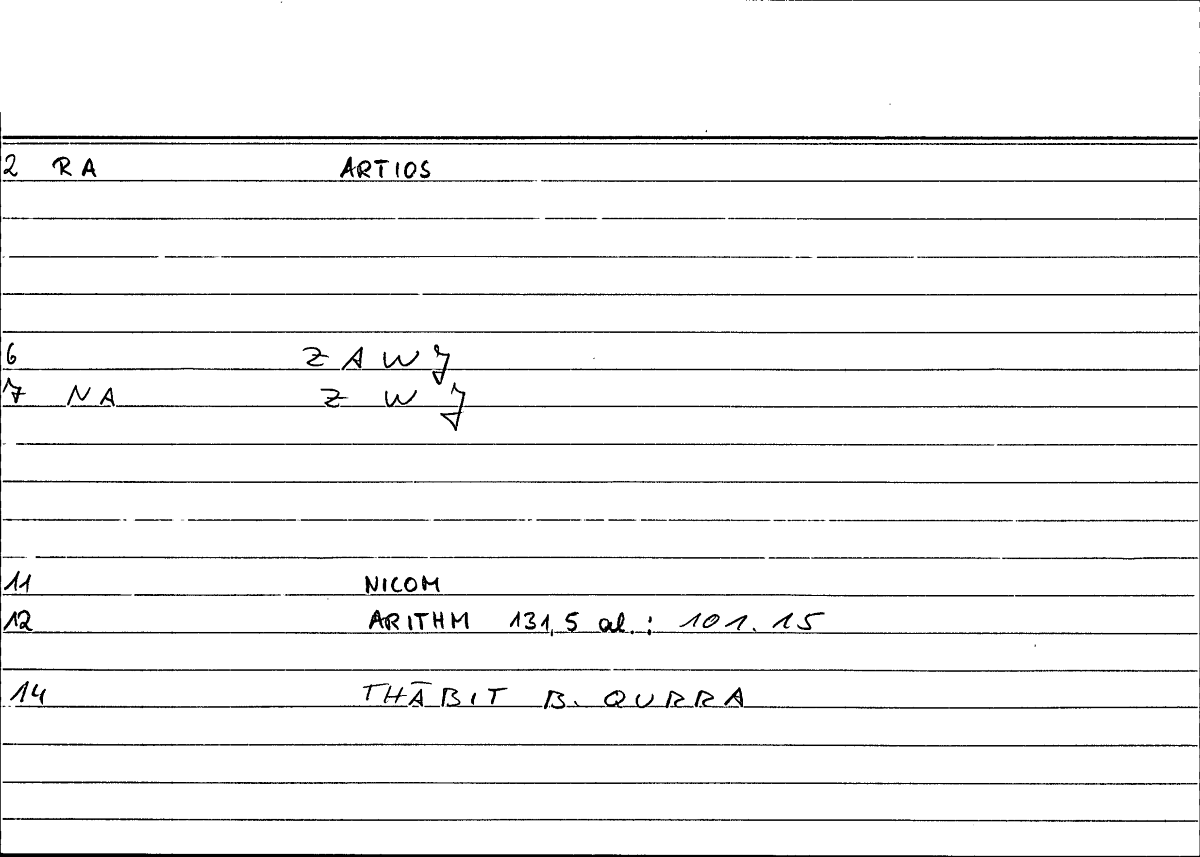 2 RA ARTIOS
6 ZAWJ
7 NA Z W J
11 NICOM
12 ARITHM 131,5 al.: 101.15
14 THĀBIT B. QURRA